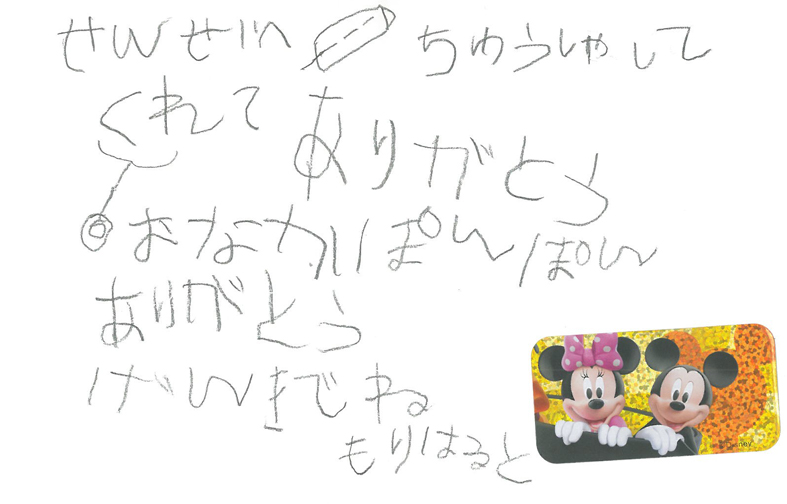 せんせいへ ちゅうしゃして
くれて ありがとう
おなかいぽんぽん
ありがとう
げんきでね
もりはると
©Disney